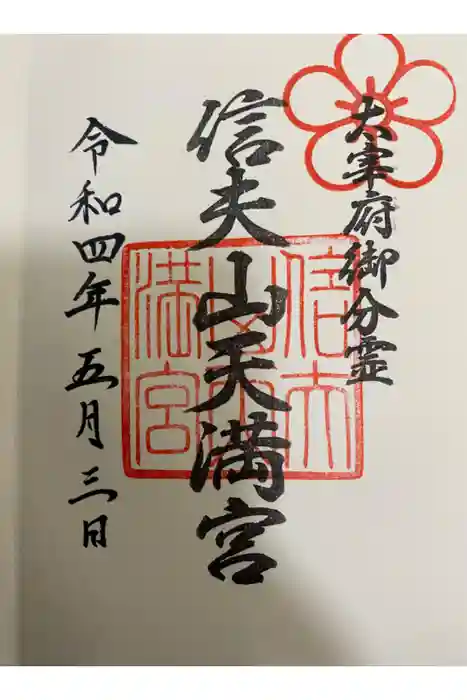 太宰府御分霊
信夫山天満宮
信夫
山天
満宮
令和四年五月三日